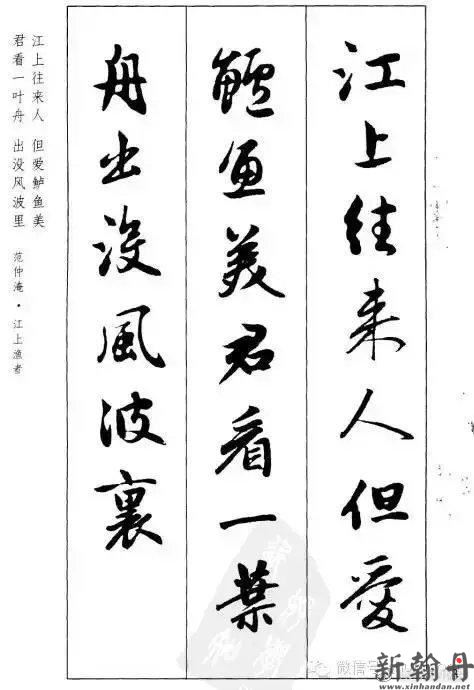 江上往来人但愛
鱸魚美君看一葉
舟出没風波裏
江上往来人 但爱鲈鱼美
君看一叶舟 出没风波里
范仲淹·江上渔者
微信号
新翰丹
www.xinhandan.net